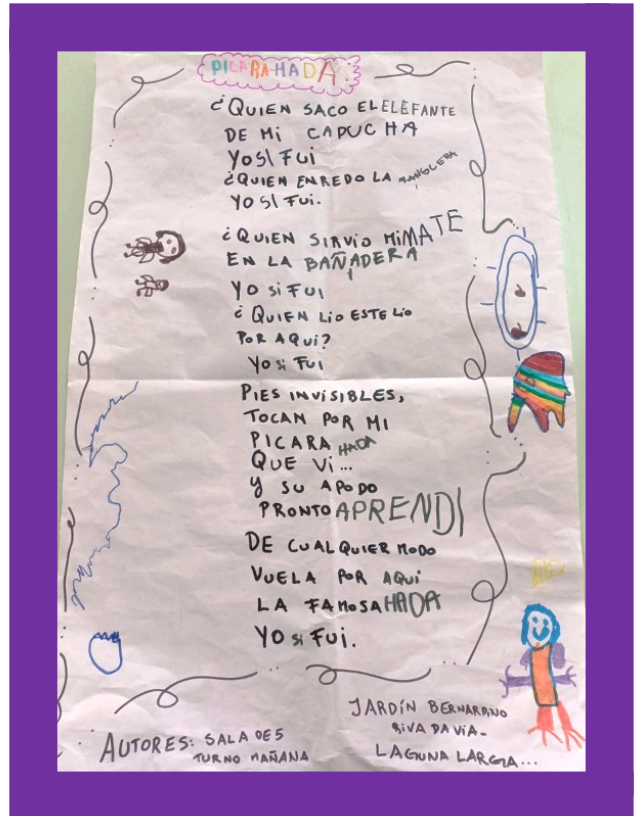 PICARA-HADA:
¿QUIEN SACO EL ELEFANTE
DE Mi CAPUCHA
YO SI FUI
¿QUIEN ENREDO LA MANGUERA
YO SI FUI.
¿QUIEN SIRVIO Mi MATE
EN LA BAÑADERA
YO Si FUI
¿QUIEN LiO ESTE LiO
POR AQUi?
YO Si FUI
PIES INViSIBLES,
TOCAN POR MI
PICARA HADA
QUE Vi...
Y SU APODO
PRONTO APRENDI
DE CUALQUIER MODO
VUELA POR AQUi
LA FAMOSA HADA
YO Si FUi.
JARDÍN BERNARDINO
RIVADAVIA-
LAGUNA LARGA...
AUTORES: SALA DE 5
TURNO MAÑANA